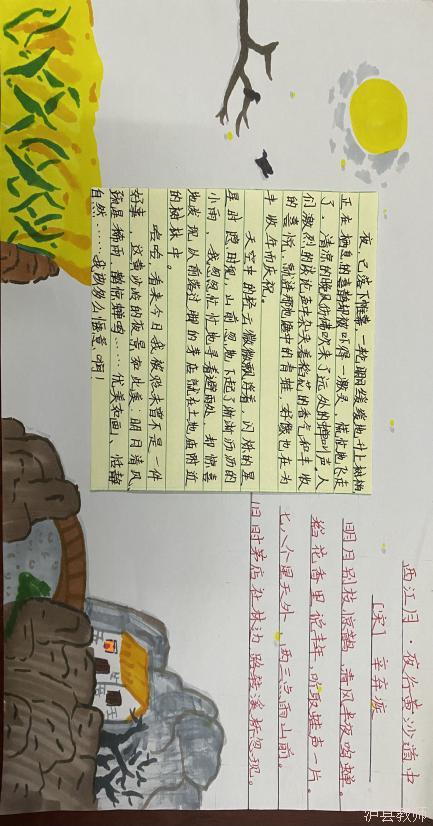 西江月·夜行黄沙道中
[宋] 辛弃疾
明月别枝惊鹊，清风半夜鸣蝉。
稻花香里说丰年，听取蛙声一片。
七八个星天外，两三点雨山前。
旧时茅店社林边，路转溪桥忽见。
夜，已落下帷幕，一轮明月缓缓地升上树梢
正在栖息的喜鹊却被吓得一激灵，慌忙地飞走
了。清凉的晚风仿佛吹来了远处的蝉叫声，人
们激烈的谈论声中夹杂着稻花的香气和丰收
的喜悦，那池塘中的青蛙，好像也在为
丰收年而庆祝。
天空中的轻云微微飘浮着，闪烁的星
星时隐时现，山前忽地下起了淅淅沥沥的
小雨，我匆匆忙忙地寻着避雨处，却惊喜
地发现从前落过脚的茅店就在土地庙附近
的树林中。
哈哈，看来今日我被贬未曾不是一件
好事，这黄沙岭的夜景如此美：明月清风、
疏星稀雨、鹊惊蝉鸣……优美如画、恬静
自然……我多么惬意啊！
泸县教师